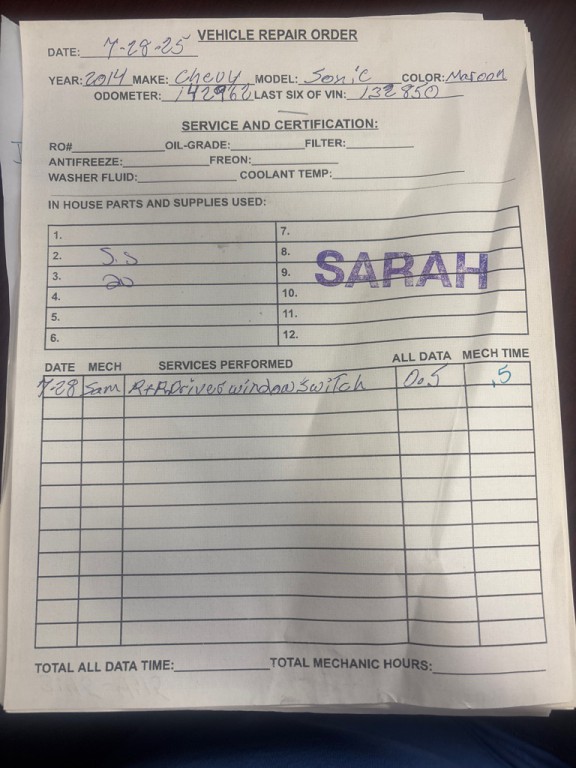 VEHICLE REPAIR ORDER
DATE: 7-28-25
YEAR: 2014 MAKE: Chevy MODEL: Sonic COLOR: Maroon
ODOMETER: 142962 LAST SIX OF VIN: 132850
SERVICE AND CERTIFICATION:
RO# OIL-GRADE: FILTER:
ANTIFREEZE: FREON:
WASHER FLUID: COOLANT TEMP:
IN HOUSE PARTS AND SUPPLIES USED:
1. 7.
2. S.S 8.
3. 20 9.
SARAH
4. 10.
5. 11.
6. 12.
DATE MECH SERVICES PERFORMED ALL DATA MECH TIME
7-28 Sam R+R Driver window switch 0.5 .5
TOTAL ALL DATA TIME: TOTAL MECHANIC HOURS: